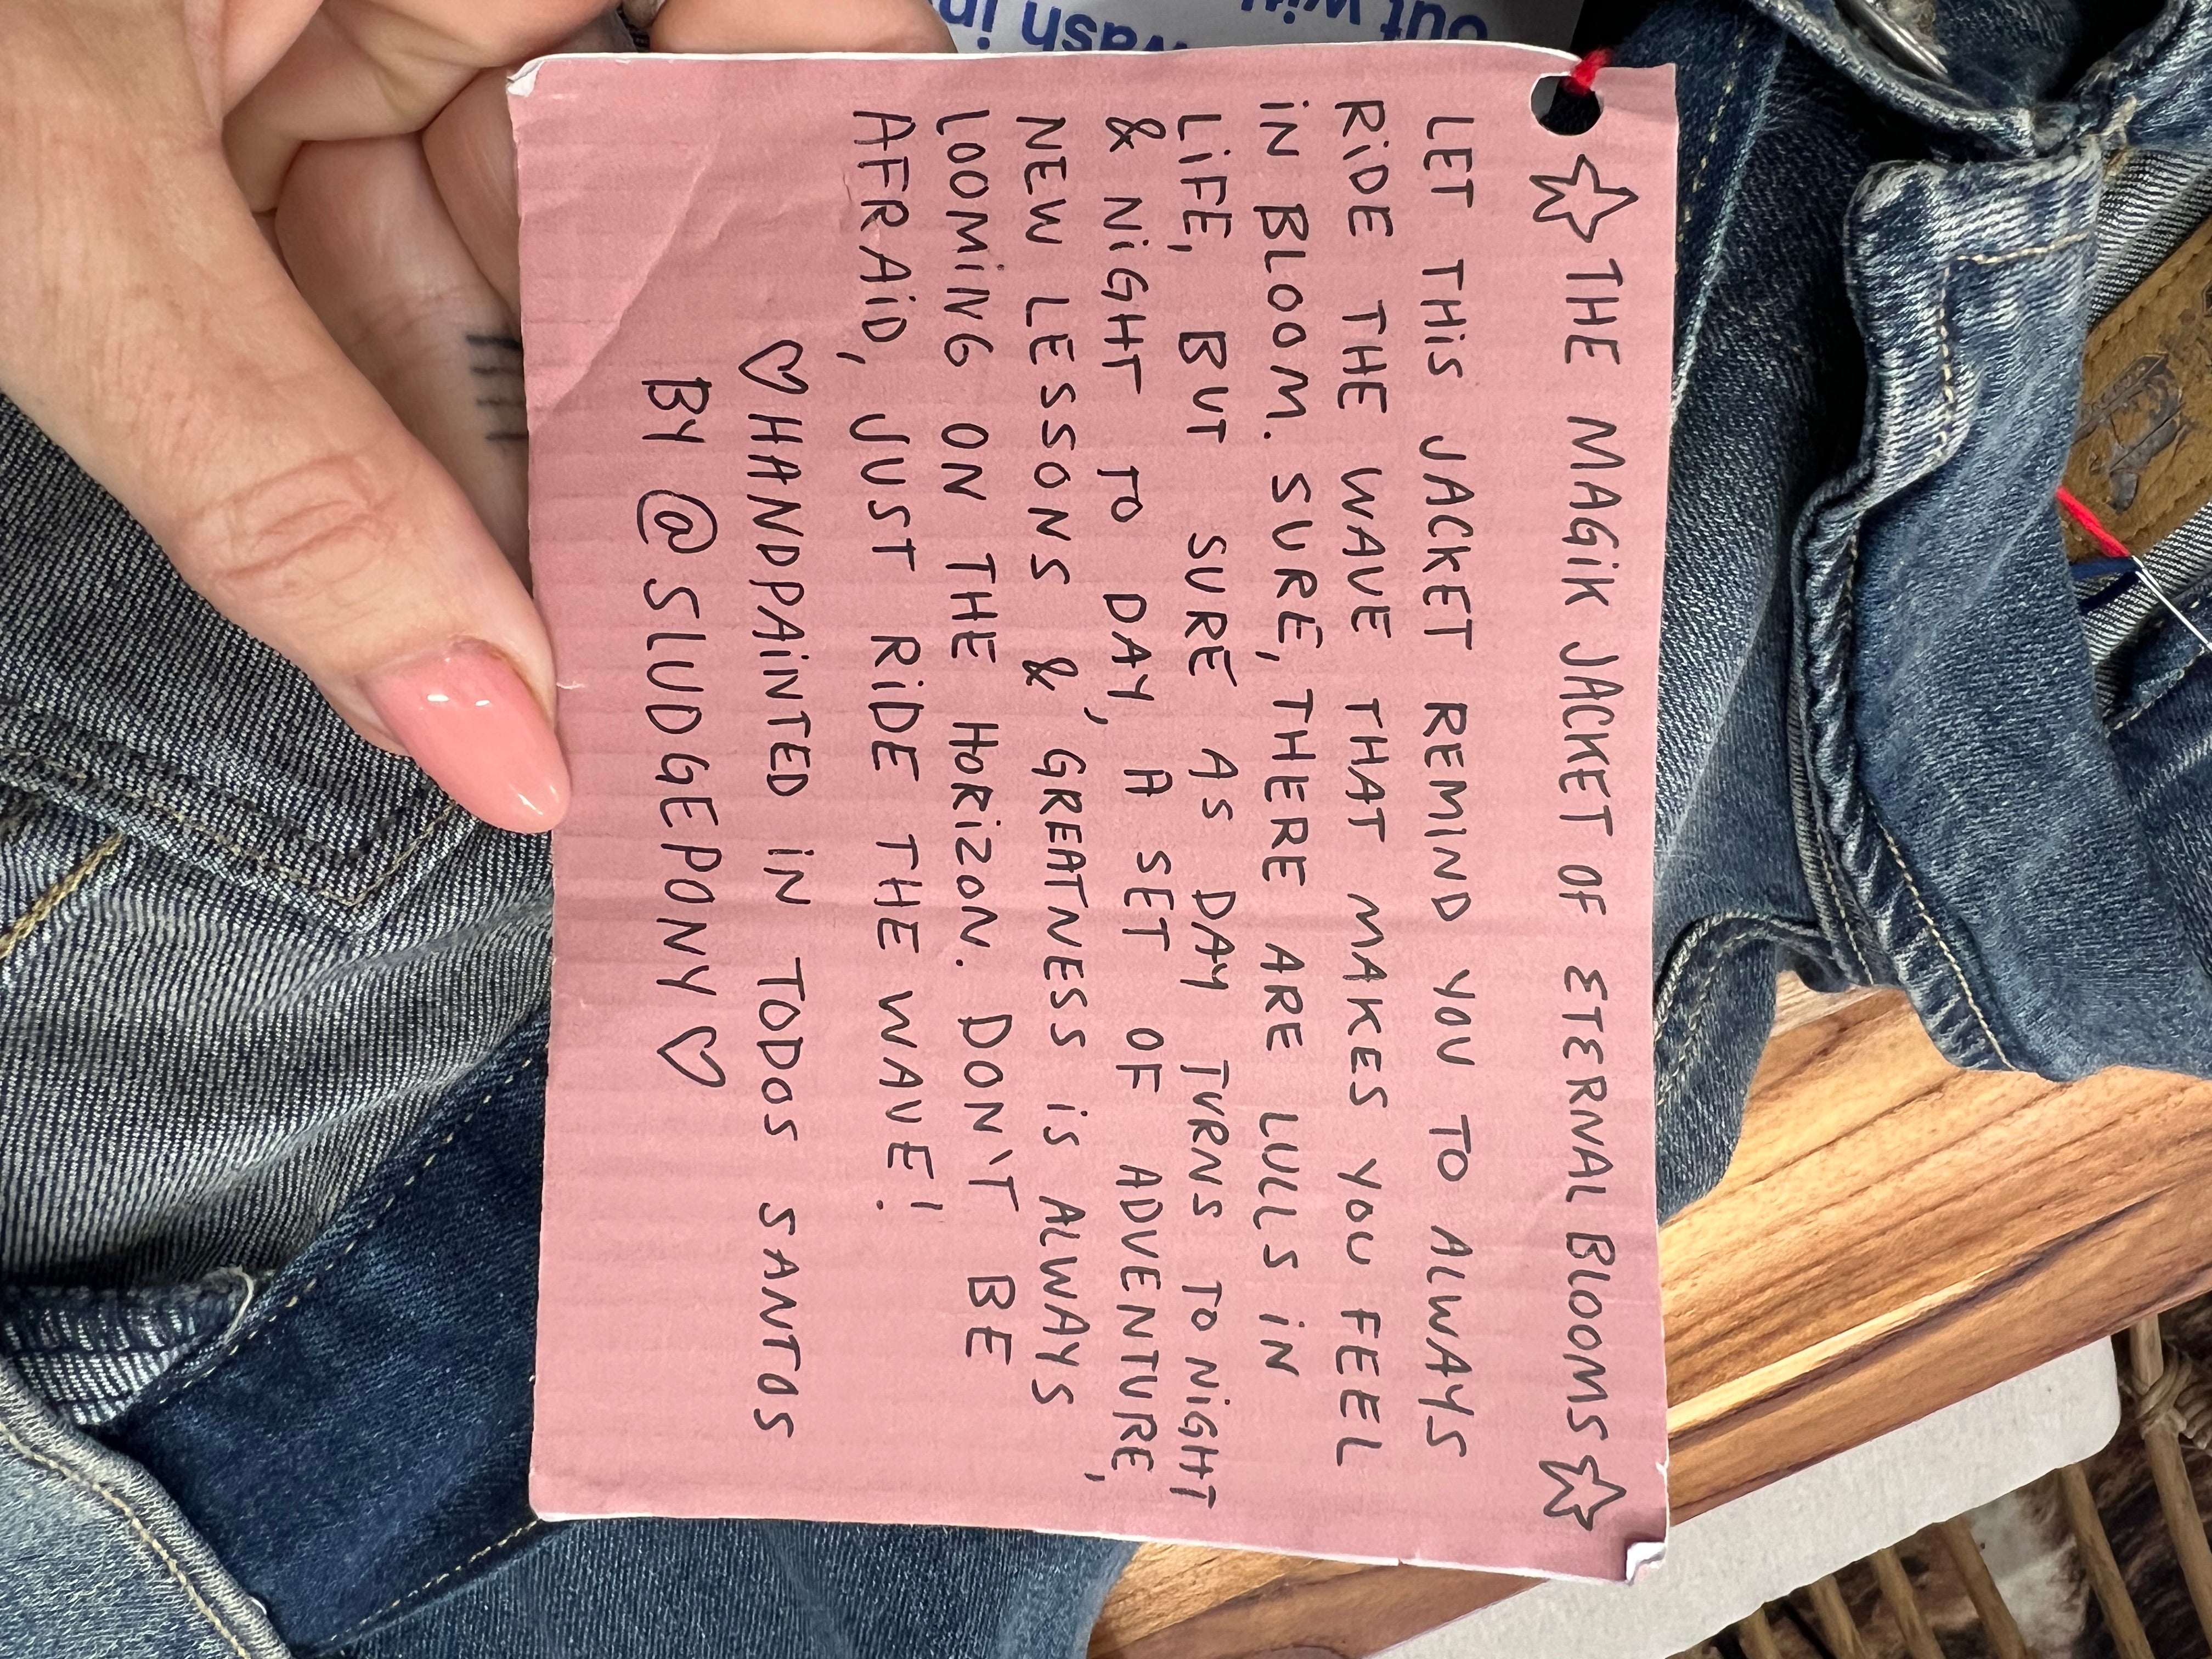 ☆ THE MAGiK JACKET OF ETERNAL BLOOMS ☆
LET THiS JACKET REMIND YOU TO ALWAYS
RiDE THE WAVE THAT MAKES YOU FEEL
iN BLOOM. SURE, THERE ARE LULLS iN
LiFE, BUT SURE AS DAY TURNS TO NiGHT
& NiGHT TO DAY, A SET OF ADVENTURE,
NEW LESSONS & GREATNESS iS ALWAYS
LOOMiNG ON THE HORiZON. DON'T BE
AFRAiD, JUST RiDE THE WAVE!
♡ HANDPAiNTED iN TODOS SANTOS
BY @SLUDGEPONY ♡
out with
wash in